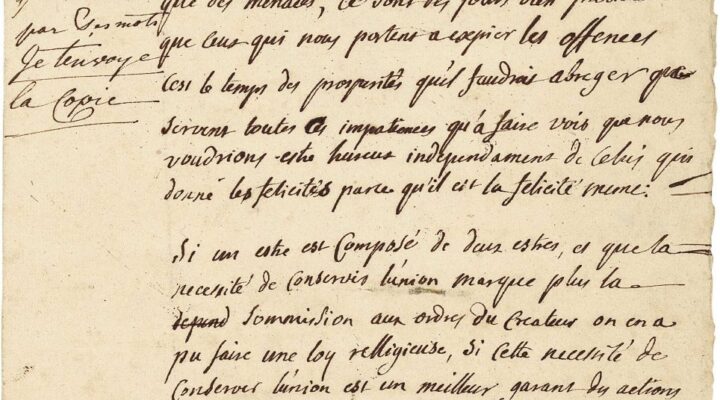 que des menaces, ce sont des jours bien
que ceux qui nous portent a expier les offences
c'est le temps des prosperités qu'il faudrait abreger que
servent toutes ces impatiences qu'a faire voir que nous
voudrions estre hureux independament de celui qui
donne les felicités parce qu'il est la felicité meme.
Si un estre est Composé de deux estres, et que la
necessité de Conserver l'union marque plus la
depend Sommission aux ordres du Createur on en a
pu faire une loy relligieuse, Si cette necessité de
Conserver l'union est un meilleur garant des actions
par Ses mots
Je t'envoye
la Copie